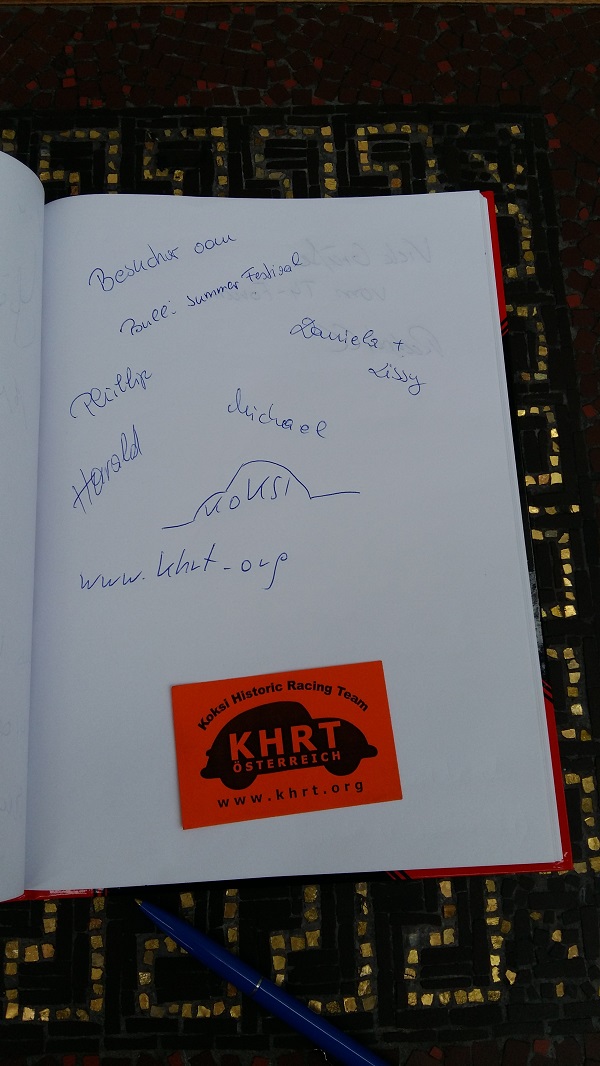 Besucher vom
Bulli Summer Festival
Daniela +
Sissy
Phillip
Michael
Harald
KOKSI
www.khrt.org
Koksi Historic Racing Team
KHRT
ÖSTERREICH
www.khrt.org